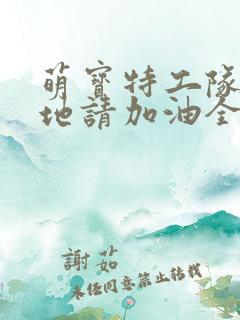 萌寶特工隊
地請加油全
謝茹
未經同意禁止轉載